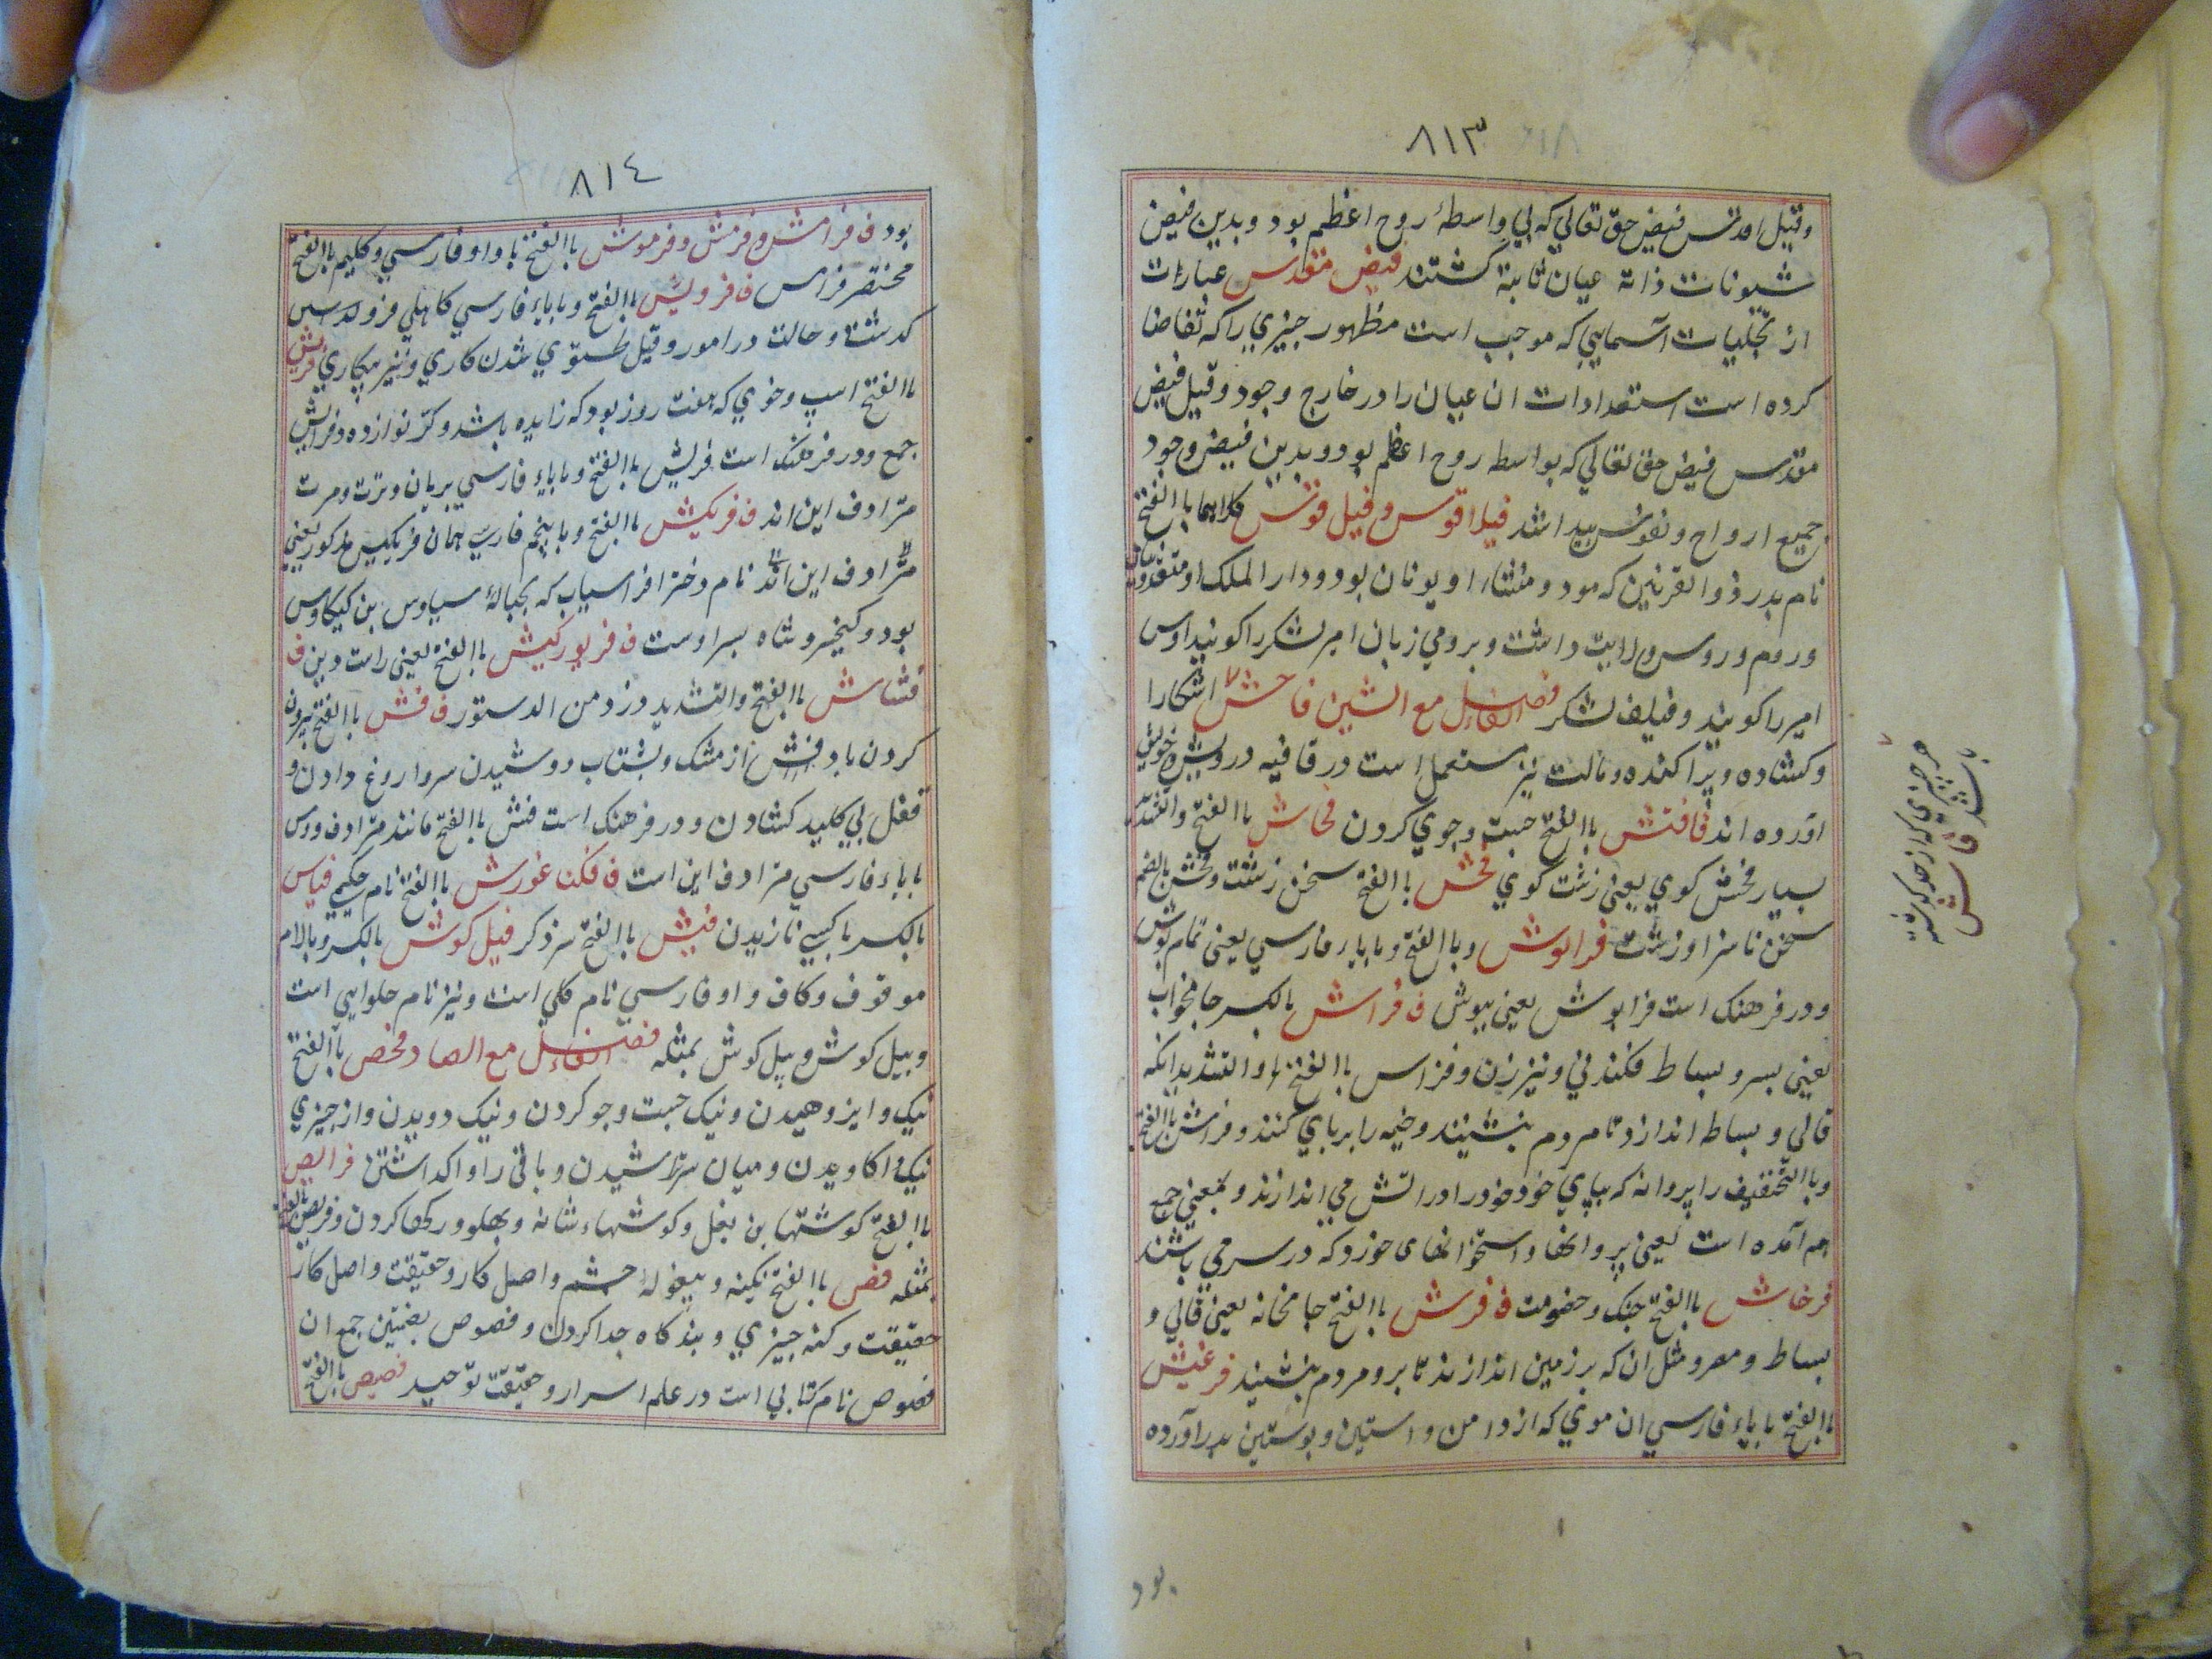 ٨١٣
وقیل اقدس فیض حق تعالی که بی واسطهٔ روح اعظم بود و بدین فیض
شیونات ذاته عیان ثابته گشتند فیض مقدس عبارات
از تجلیات آسمایی که موجب است مظهور چیزی را که تقاضا
کرده است استعدادات ان عیان را در خارج وجود وقیل فیض
مقدس فیض حق تعالی که بواسطه روح اعظم بود و بدین فیض وجود
جمیع ارواح و نفوس پیدا شد فیلاقوس و فیل قوس کلاهما باالفتح
نام پدر ذوالقرنین که مود و منشا او یونان بود و دار الملک او
وروم و روس ولایت داشت و برومی زبان امیر لشکر را کویند اوس
امیر را کویند و فیلف لشکر فصل الفاء مع الشین فاحش اشکارا
وکشاده و پراکنده و نالت نیز مستعمل است در قافیه درویش و خویش
آورده اند ف فتش باالفتح جست وجوی کردن فحاش باالفتح والتشدید
بسیار فحش کوی یعنی زشت کوی فحش باالفتح سخن زشت و فحش بالضم
سخن ناسزا و زشت فرابوش و باالفتح و باباء فارسی یعنی تمام پوش
ودر فرهنک است فرابوش یعنی بیوش ف فراش بالکسر جامخواب
یعنی بستر و بساط فکندنی و نیز زن و فراس باالفتح او التشدید انکه
قالی و بساط اندازد تا مردم بنشینند و خیمه را برپای کنند و فراش باالفتح
وباالتخفیف را پروانه که بپای خود خود را در اتش می اندازند و بمعنی جمع
هم آمده است یعنی پروانها و استخوانهای خورد که در سر می باشند
فرخاش باالفتح جنک و خصومت ف فرش باالفتح جامخانه یعنی قالی و
بساط و معرو مثل ان که بر زمین اندازند تا برو مردم بنشیند فرغیش
باالفتح باباء فارسی ان موی که از دامن و استین و پوستین بدر آورده
بود
هر چیزی که از حد گذشته
باشد فاحش
٨١٤
بود ف فرامش و فرمش و فرموش باالفتح با واو فارسی و کلیم باالفتح
مختصر فراس ف فرویش باالفتح و باباء فارسی کاهلی
کدشت و حالت در امور وقیل طسوی شدن کاری و نیز بیکاری فریش
باالفتح اسپ و خوی که هفت روز بود که زایده باشد و کژ نوازده و فرایش
جمع و در فرهنک است فریش باالفتح و باباء فارسی بریان و ترت و مرت
مترادف این اند ف فریکیش باالفتح و بابنجم فارسی همان فریکیس مذکور یعنی
مترادف این اند نام دختر افراسیاب که بحبالهٔ سیاوس بن کیکاوس
بود و کیخسرو شاه پسر اوست ف فریورکیش باالفتح یعنی راست دین ف
فشاش باالفتح والتشدید دزد من الدستور ف فش باالفتح بیرون
کردن باد فش از مشک و بشتاب دوشیدن سروا روغ دادن و
قفل بی کلید کشادن و در فرهنک است فش باالفتح مانند مترادف ووس
باباء فارسی مترادف این است ف فکنا غورش باالفتح نام حکیمی فیاس
بالکسر با کسی نازیدن فیش باالفتح سر ذکر فیل کوش بالکسر و بالام
موقوف و کاف و او فارسی نام کلی است و نیز نام حلوایی است
و بیل کوش و پیل کوش بمثله فصل الفاء مع الصاد فحص باالفتح
نیک وا پژوهیدن و نیک جست وجو کردن و نیک دویدن و از چیزی
نیک وا کاویدن و میان سر تراشیدن و باقی را وا کداشتن فرایص
باالفتح کوشتهاء بن بغل و کوشتهاء شانه و بهلو و رکها کردن و فریص باالفتح
بمثله فص باالفتح نکینه و بیغولهٔ چشم و اصل کار و حقیقت و اصل کار
حقیقت و کنه چیزی و بندکاه جدا کردن و فصوص بضمتین جمع ان
فصوص نام کتابی است در علم اسرار و حقیقت توحید فصیص باالفتح